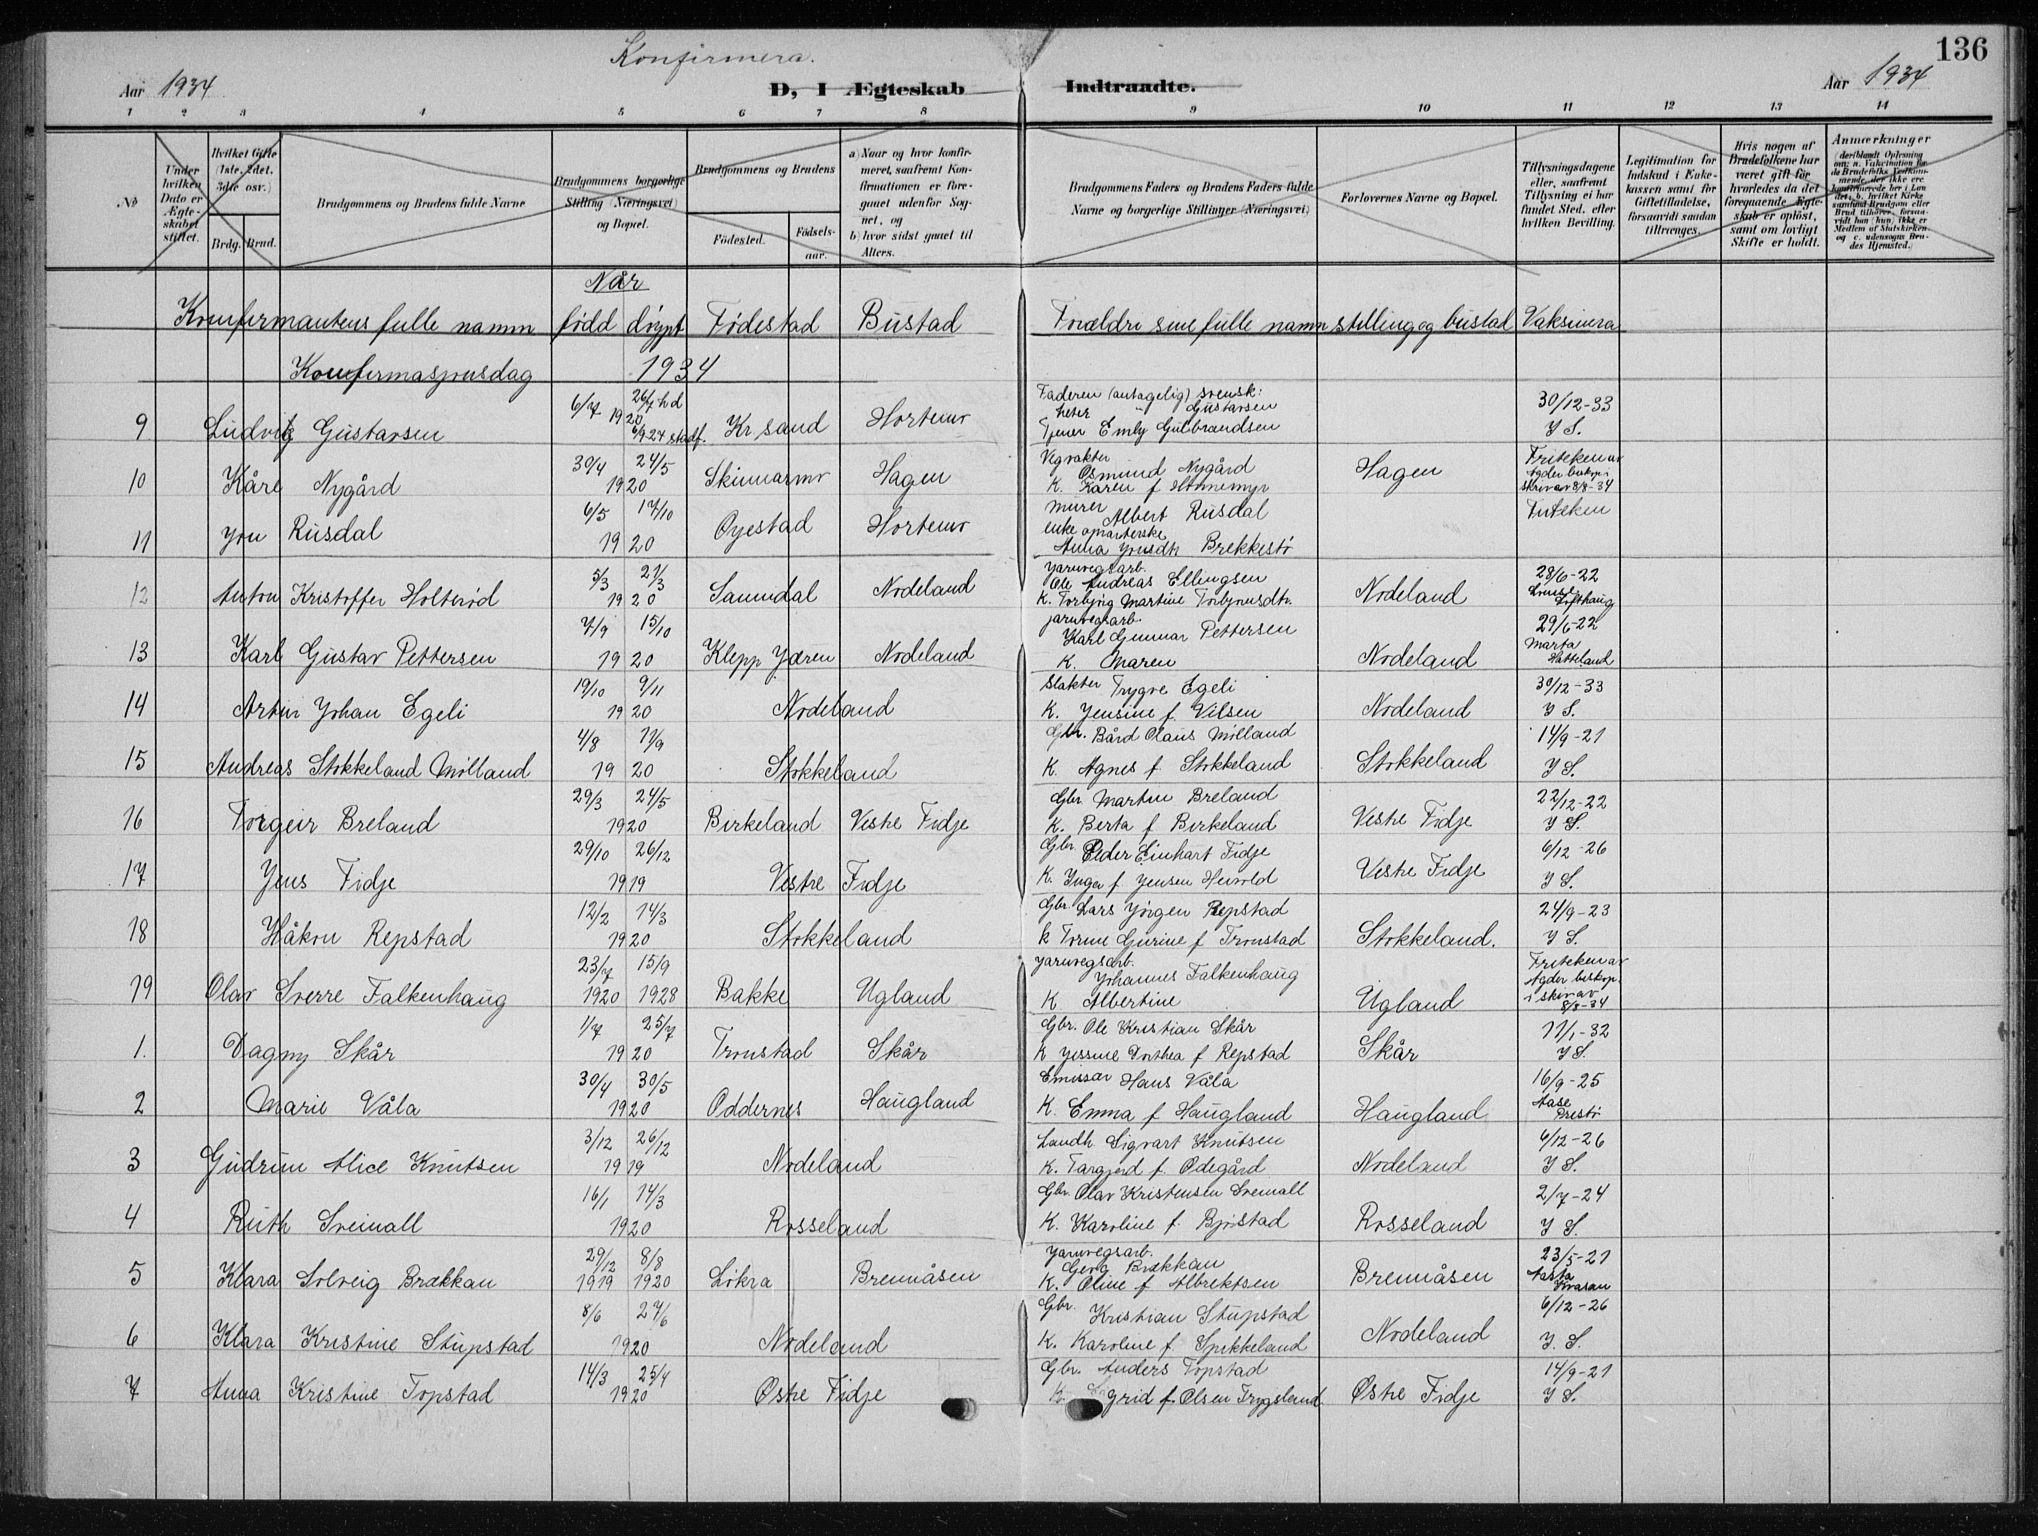 Konfirmera.
136
Aar 1934
D, I Ægteskab Indtraadte.
Aar 1934
1 2 3 4 5 6 7 8 9 10 11 12 13 14
No
Under hvilken Dato er Ægteskabet stiftet.
Hvilket Gifte (1ste, 2det, 3die osv.)
Brdg. Brud.
Brudgommens og Brudens fulde Navne
Brudgommens borgerlige Stilling (Næringsvei) og Bopæl.
Brudgommens og Brudens
Födested. Födselsaar.
a) Naar og hvor konfirmeret, saafremt Konfirmationen er foregaaet udenfor Sognet, og
b) hvor sidst gaaet til Alters.
Brudgommens Faders og Brudens Faders fulde Navne og borgerlige Stillinger (Næringsvei)
Forlovernes Navne og Bopæl.
Tillysningsdagene eller, saafremt Tillysning ei har fundet Sted, efter hvilken Bevilling.
Legitimation for Indskud i Enkekassen samt for Giftetilladelse, forsaavidt saadan tiltrænges.
Hvis nogen af Brudefolkene har været gift för hvorledes da det foregaaende Ægteskab er oplöst, samt om lovligt Skifte er holdt.
Anmærkninger
(deriblandt Oplysning om: a. Vakcination for de Brudefolks Vedkommende, der ikke ere konfirmerede her i Landet; b. hvilket Kirkesamfund Brudgom eller Brud tilhörer, forsaavidt han (hun) ikke er Medlem af Statskirken og c. udensogns Brudes Hjemsted.)
Når
Konfirmantens fulle namn född döypt Födestad Bustad Forældre sine fulle namn stilling og bustad Vaksinera
Konfirmasjonsdag 1934
9 Ludvig Gustavsen 6/7 1920 26/7 hd 6/9-24 stadf. Kr.sand Hortemo
Faderen (antagelig) svensk:
heter " Gustavsen
Tjener Emly Gulbrandsen
30/12-33
J S.
10 Kåre Nygård 30/4 24/5 1920 Skinnarmo Hagen
Vegvakter Osmund Nygård
K. Karen f Honnemyr Hagen
Friteken av Agder biskop i skriv av 8/8-34
11 Jon Rusdal 6/5 17/10 1920 Øyestad Hortemo
Murer Albert Rusdal
enke
Anna Jonsdtr Brekkestö
Friteken
12 Anton Kristoffer Holteröd 5/3 21/3 1920 Saundal Nodeland
Jarnvegsarb.
Ole Andreas Ellingsen
K. Torbjörg Martine Torbjörnsdtr. Nodeland
28/6-22
Lofthaug
13 Karl Gustav Pettersen 7/9 15/10 1920 Klepp Jæren Nodeland
jarnvegsarb.
Karl Gunnar Pettersen
K. Maren Nodeland
29/6-22
Marta Hatteland
14 Artur Johan Egeli 19/10 9/11 1920 Nodeland
Slakter Trygve Egeli
K. Jensine f. Nilsen Nodeland
30/12-33
J S.
15 Andreas Stokkeland Mölland 4/8 19/9 1920 Stokkeland
Gbr. Bård Olaus Mölland
K. Agnes f Stokkeland Stokkeland
14/9-21
J S.
16 Torgeir Breland 29/3 24/5 1920 Birkeland Vestre Fidje
Gbr Martin Breland
K. Berta f Birkeland Vestre Fidje
22/12-22
J S.
17 Jens Fidje 29/10 26/12 1919 Vestre Fidje
Gbr. Peder Einhart Fidje
K. Inga f Jensen Heivold Vestre Fidje
6/12-26
J S.
18 Håkon Repstad 12/2 14/3 1920 Stokkeland
Gbr. Lars Jörgen Repstad
k Torine Gurine f Tronstad Stokkeland.
24/9-23
J S.
19 Olav Sverre Falkenhaug 23/7 15/9 1920 1928 Bakke Ugland
Jarnvegsarb.
Johannes Falkenhaug
K Albertine Ugland
Friteken av Agder biskop i skriv av 8/8-34
1. Dagny Skår 1/7 25/7 1920 Tronstad Skår
Gbr. Ole Kristian Skår
K Jessine Dorthea f Repstad Skår
11/1-32
J S.
2 Marie Våla 30/4 30/5 1920 Oddernes Haugland
Emissær Hans Våla
K. Emma f Haugland Haugland
16/9-25
Aase Prestö
3 Gudrun Alice Knutsen 3/12 26/12 1919 Nodeland
Landh. Sigvart Knutsen
K. Targjerd f. Ødegård Nodeland
6/12-26
J S.
4 Ruth Sveinall 16/1 14/3 1920 Rosseland
Gbr. Olav Kristensen Sveinall
K. Karoline f. Björstad Rosseland
2/7-24
J S.
5 Klara Solveig Brækkan 29/12 8/8 1919 1920 Lökra Brennåsen
Jarnvegsarb.
Georg Brækkan
K. Oline f Albrektsen Brennåsen
23/5-21
Aasta Kvasan
6 Klara Kristine Stupstad 8/6 27/6 1920 Nodeland
Gbr. Kristian Stupstad
K. Karoline f. Spikkeland Nodeland
6/12-26
J. S.
7 Anna Kristine Topstad 14/3 25/4 1920 Østre Fidje
Gbr. Anders Topstad
K. Sigrid f. Olsen Trygsland Østre Fidje
14/9-21
J S.